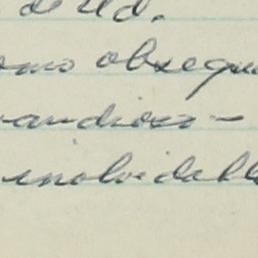 de Ud.
omo obsequi
andioso -
inolvidable